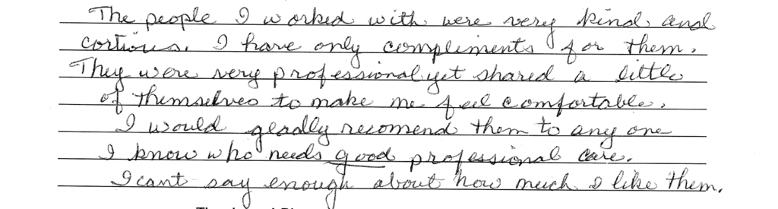 The people I worked with were very kind and
cortious. I have only compliments for them.
They were very professional yet shared a little
of themselves to make me feel comfortable.
I would gladly recomend them to any one
I know who needs good professional care.
I cant say enough about how much I like them.